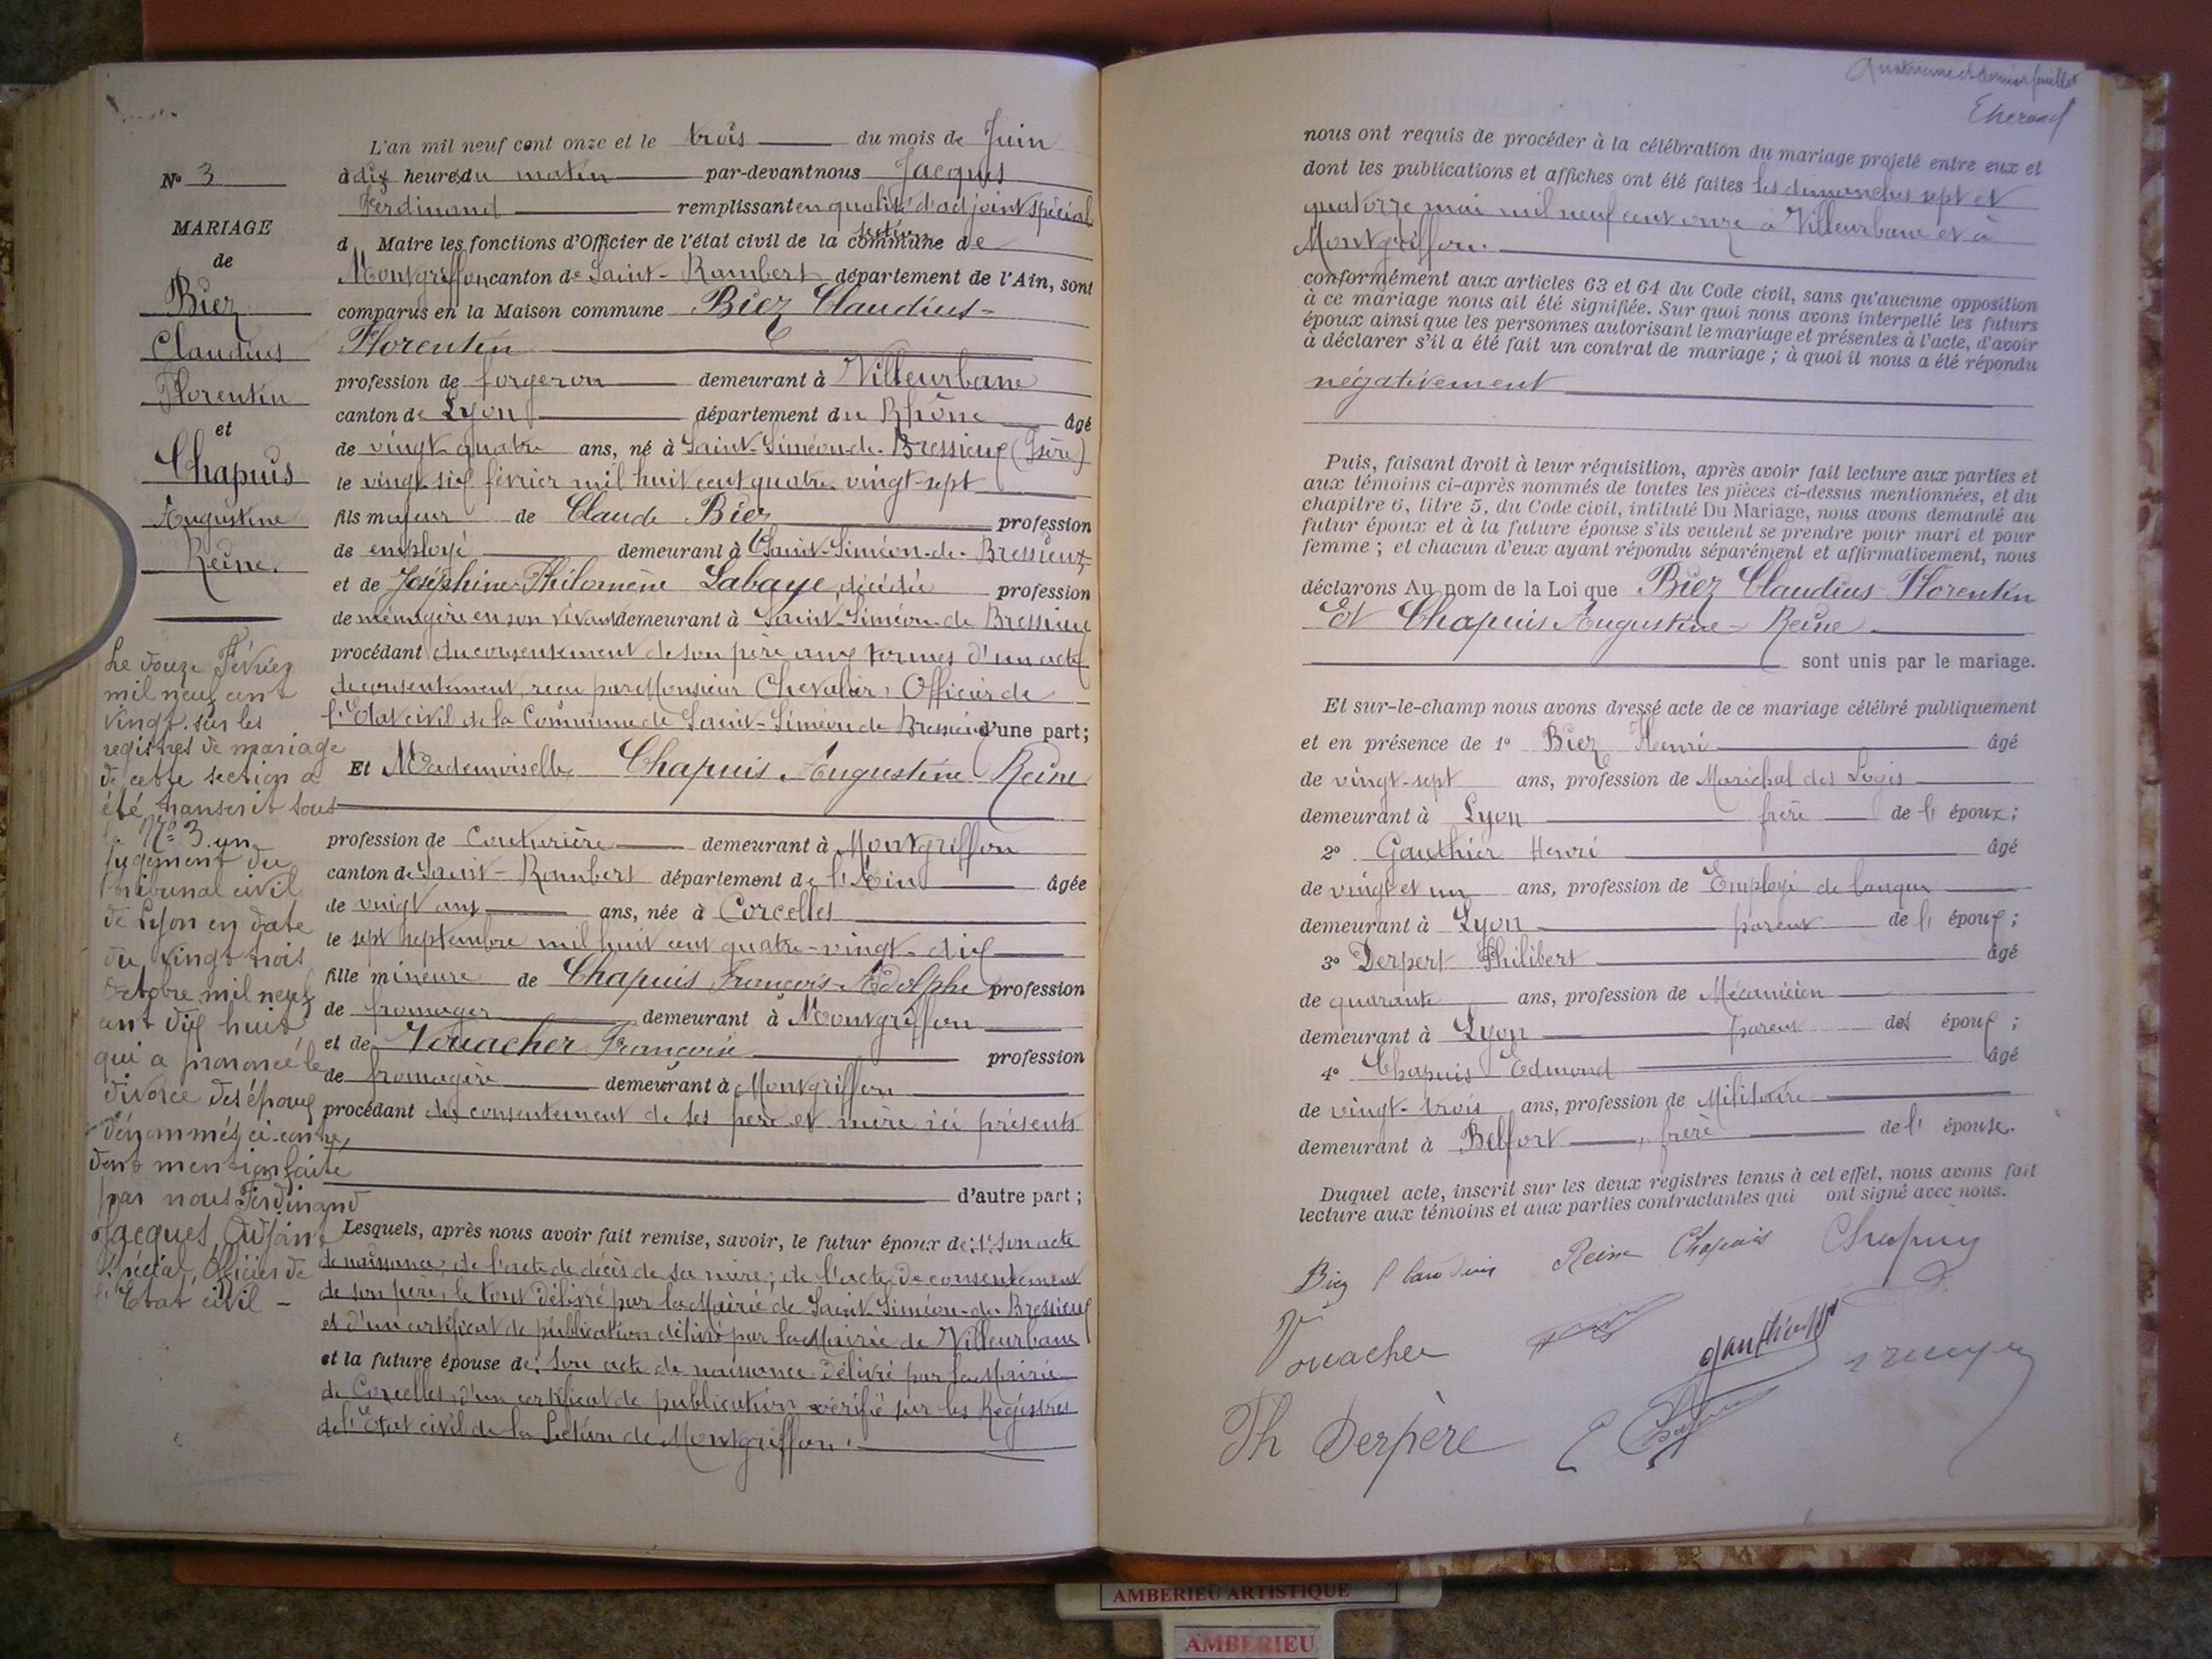 N° 3
MARIAGE
de
Biez
Claudius
Florentin
et
Chapuis
Augustine
Reine.
Le douze Février
mil neuf cent
vingt. sur les
registres de mariage
de cette section a
été transcrit sous
le N° 3. un
jugement du
tribunal civil
de Lyon en date
du vingt trois
Octobre mil neuf
cent dix huit
qui a prononcé le
divorce des époux
dénommés ci-contre,
dont mention faite
par nous Ferdinand
Jacques, Adjoint
Spécial, Officier de
l'Etat civil -
L'an mil neuf cent onze et le trois du mois de Juin
à dix heures du matin par-devant nous Jacques
Ferdinand remplissant en qualité d'adjoint spécial
d Maire les fonctions d'Officier de l'état civil de la commune section de
Montgriffon canton de Saint-Rambert département de l'Ain, sont
comparus en la Maison commune Biez Claudius-
Florentin
profession de forgeron demeurant à Villeurbane
canton de Lyon département du Rhône âgé
de vingt-quatre ans, né à Saint-Siméon-de-Bressieux (Isère)
le vingt-six février mil huit cent quatre-vingt-sept
fils majeur de Claude Biez profession
de employé demeurant à Saint-Siméon-de-Bressieux
et de Joséphine-Philomène Labaye, décédée profession
de ménagère en son vivant demeurant à Saint-Siméon-de Bressieux
procédant du consentement de son père aux termes d'un acte
de consentement reçu par Monsieur Chevalier, Officier de
l'Etat civil de la Commune de Saint-Siméon de Bressieux d'une part;
Et Mademoiselle Chapuis Augustine Reine
profession de Couturière demeurant à Montgriffon
canton de Saint-Rambert département de l'Ain âgée
de vingt ans ans, née à Corcelles
le sept septembre mil huit cent quatre-vingt-dix
fille mineure de Chapuis François-Adolphe profession
de fromager demeurant à Montgriffon
et de Vouacher Françoise profession
de fromagère demeurant à Montgriffon
procédant du consentement de ses père et mère ici présents
d'autre part;
Lesquels, après nous avoir fait remise, savoir, le futur époux de: 1° son acte
de naissance, de l'acte de décès de sa mère; de l'acte de consentement
de son père, le tout délivré par la Mairie de Saint-Siméon-de-Bressieux
et d'un certificat de publication délivré par la Mairie de Villeurbane
et la future épouse de: son acte de naissance délivré par la Mairie
de Corcelles, d'un certificat de publication vérifié sur les Régistres
de l'Etat civil de la Section de Montgriffon.
Quatrième et dernier feuillet
nous ont requis de procéder à la célébration du mariage projeté entre eux et
dont les publications et affiches ont été faites les dimanches sept et
quatorze mai mil neuf cent onze à Villeurbane et à
Montgriffon.
conformément aux articles 63 et 64 du Code civil, sans qu'aucune opposition
à ce mariage nous ait été signifiée. Sur quoi nous avons interpellé les futurs
époux ainsi que les personnes autorisant le mariage et présentes à l'acte, d'avoir
à déclarer s'il a été fait un contrat de mariage; à quoi il nous a été répondu
négativement
Puis, faisant droit à leur réquisition, après avoir fait lecture aux parties et
aux témoins ci-après nommés de toutes les pièces ci-dessus mentionnées, et du
chapitre 6, titre 5, du Code civil, intitulé Du Mariage, nous avons demandé au
futur époux et à la future épouse s'ils veulent se prendre pour mari et pour
femme; et chacun d'eux ayant répondu séparément et affirmativement, nous
déclarons Au nom de la Loi que Biez Claudius-Florentin
Et Chapuis Augustine-Reine
sont unis par le mariage.
Et sur-le-champ nous avons dressé acte de ce mariage célébré publiquement
et en présence de 1° Biez Henri âgé
de vingt-sept ans, profession de Maréchal des Logis
demeurant à Lyon frère de l' époux;
2° Gauthier Henri âgé
de vingt et un ans, profession de Employé de banque
demeurant à Lyon parent de l' époux;
3° Derpert Philibert âgé
de quarante ans, profession de Mécanicien
demeurant à Lyon parent des époux;
4° Chapuis Edmond âgé
de vingt-trois ans, profession de Militaire
demeurant à Belfort, frère de l' épouse.
Duquel acte, inscrit sur les deux registres tenus à cet effet, nous avons fait
lecture aux témoins et aux parties contractantes qui ont signé avec nous.
Biez Claudius Reine Chapuis Chapuis
Vouacher
Gauthier
Th Derpère
AMBERIEU ARTISTIQUE
AMBERIEU